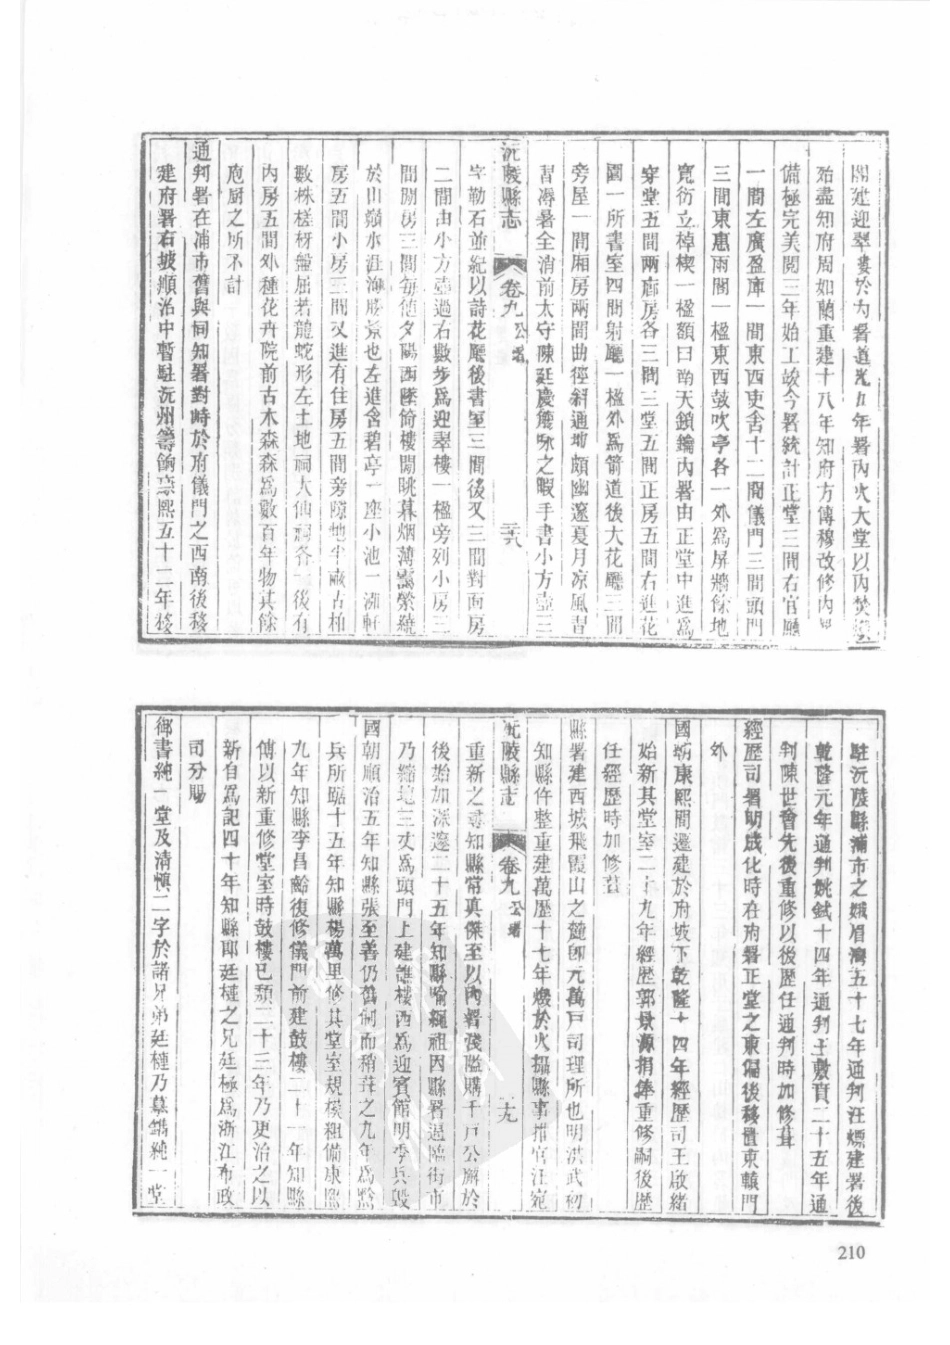 閣延迎翠樓於內署道光九年署內火大堂以內焚燬
殆盡知府周如蘭重建十八年知府方傳穆改修內署
備極完美閱三年始工竣今署統計正堂三間右官廳
一間左廣盈庫一間東西吏舍十二間儀門三間頭門
三間東惠雨閣一楹東西鼓吹亭各一外爲屏牆餘地
寬衍立棹楔一楹額曰南天鎖鑰內署由正堂中進爲
穿堂五間兩廊房各三間三堂五間正房五間右進花
園一所書室四間射廳一楹外爲箭道後大花廳三間
旁屋一間厢房兩間曲徑斜通地頗幽邃夏月凉風習
習溽暑全消前太守陳廷慶觴咏之暇手書小方壺三
沅陵縣志 卷九 公署 二十八
字勒石並紀以詩花廳後書室三間後又三間對面房
二間由小方壺過右數步爲迎翠樓一楹旁列小房三
間側房三間每值夕陽西墜倚樓閒眺暮烟薄靄縈繞
於山巔水涯海勝景也左進含碧亭一座小池一泓軒
房五間小房三間又進有住房五間旁隙地半畝古柏
數株槎枒盤屈若龍蛇形左土地祠大仙祠各一後有
內房五間外種花卉院前古木森森爲數百年物其餘
庖厨之所不計
通判署在浦市舊與同知署對峙於府儀門之西南後移
建府署右坡順治中暫駐沅州籌餉康熙五十二年移
駐沅陵縣浦市之娥眉灣五十七年通判汪熛建署後
乾隆元年通判姚鉽十四年通判王敷賁二十五年通
判陳世會先後重修以後歷任通判時加修葺
經歷司署明成化時在府署正堂之東偏後移置東轅門
外
國朝康熙間遷建於府坡下乾隆十四年經歷司王啟緒
始新其堂室二十九年經歷郭景源捐俸重修嗣後歷
任經歷時加修葺
縣署建西城飛霞山之麓卽元萬戶司理所也明洪武初
知縣仵整重建萬歷十七年燬於火攝縣事推官汪宛
沅陵縣志 卷九 公署 二十九
重新之尋知縣常真傑至以內署淺隘購千戶公廨於
後始加深邃二十五年知縣喻繩祖因縣署逼臨街市
乃縮地三丈爲頭門上建譙樓西爲迎賓館明季兵毀
國朝順治五年知縣張至善仍舊制而稍葺之九年爲黔
兵所踞十五年知縣楊萬里修其堂室規模粗備康熙
九年知縣李昌齡復修儀門前建鼓樓二十一年知縣
傅以新重修堂室時鼓樓已頹二十三年乃更治之以
新自爲記四十年知縣郎廷槤之兄廷極爲浙江布政
司分賜
御書純一堂及清愼二字於諸兄弟廷槤乃摹鐫純一堂
210